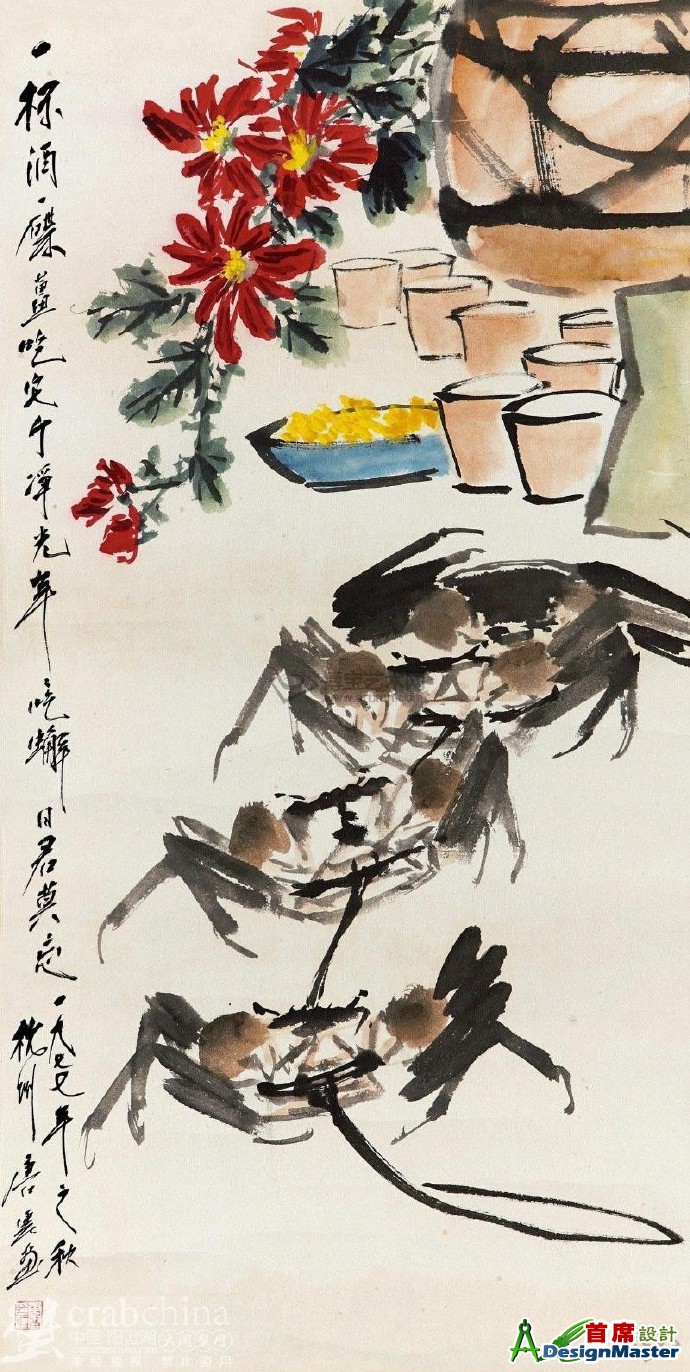 一杯酒一碟薑吃完个光年吃蠏日君莫忘一九七七年之秋
杭州唐雲畫
crabchina
首席設計
DesignMaster